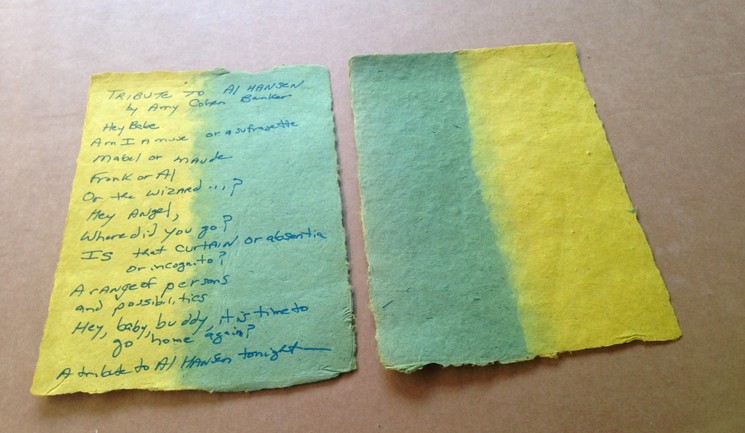 TRIBUTE TO Al HANSEN
by Amy Cohen Banker
Hey Babe
Am I A muse or a sufragette
Mabel or maude
Frank or Al
Or the WIZARD...?
Hey Angel,
Where did you go?
IS that CURTAIN or absentia
or incognito?
A range of persons
and possibilities
Hey, baby, buddy, it is time to
go home again?
A tribute to Al HANSEN tonight